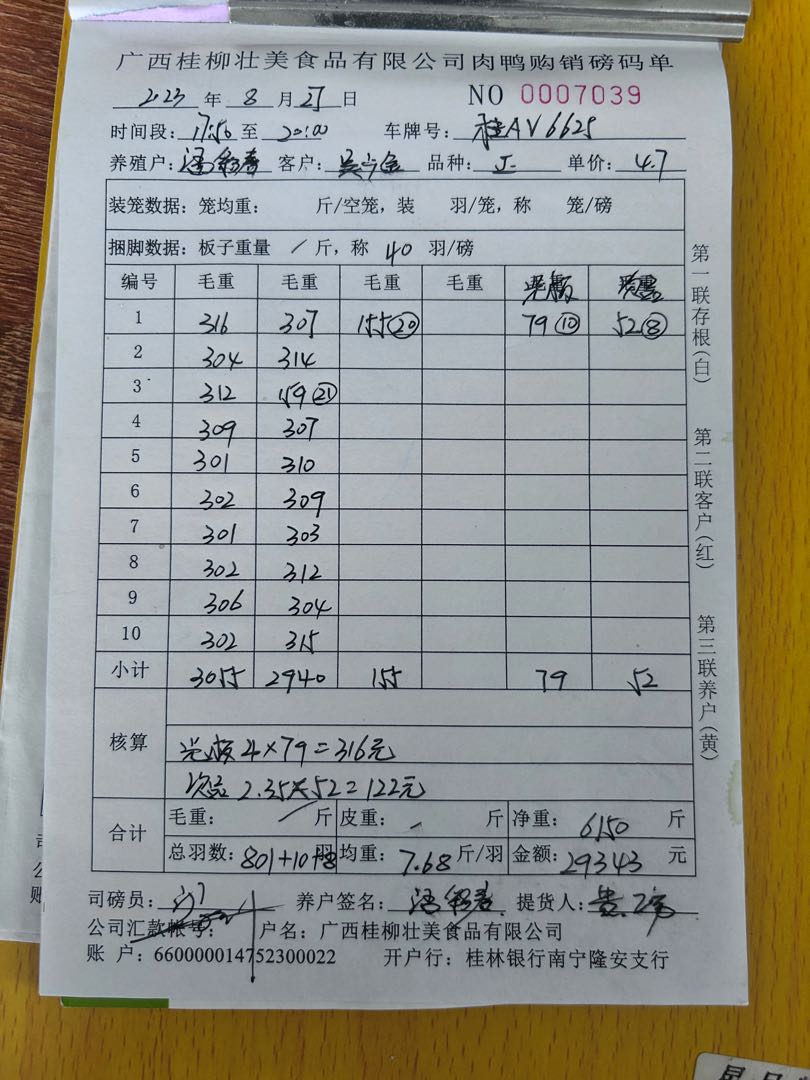 广西桂柳壮美食品有限公司肉鸭购销磅码单
2023 年 8 月 27 日 NO 0007039
时间段: 17:50 至 20:00 车牌号: 桂AV6625
养殖户: 客户: 品种: J- 单价: 4.7
装笼数据: 笼均重: 斤/空笼, 装 羽/笼, 称 笼/磅
捆脚数据: 板子重量 / 斤, 称 40 羽/磅
编号 毛重 毛重 毛重 毛重
1 316 307 155⑳ 79⑩ 52⑧
2 304 314
3 312 159㉑
4 309 307
5 301 310
6 302 309
7 301 303
8 302 312
9 306 304
10 302 315
小计 3055 2940 155 79 52
核算
4×79=316元
次品 2.35×52=122元
合计
毛重: / 斤 皮重: - 斤 净重: 6150 斤
总羽数: 801+10+8 羽 均重: 7.68 斤/羽 金额: 29343 元
司磅员: 养户签名: 提货人:
公司汇款帐号: 户名: 广西桂柳壮美食品有限公司
账 户: 660000014752300022 开户行: 桂林银行南宁隆安支行
第一联存根(白)
第二联客户(红)
第三联养户(黄)